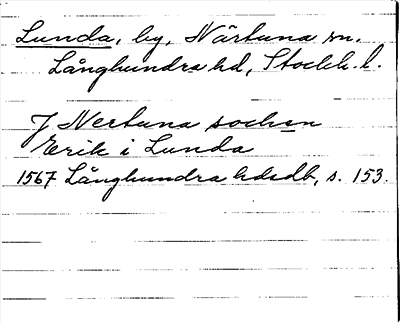 Lunda, by, Närtuna sn.
Långhundra hd, Stockh. l.
J Nertuna sochen
Erik i Lunda
1567 Långhundra hdsdb, s. 153.